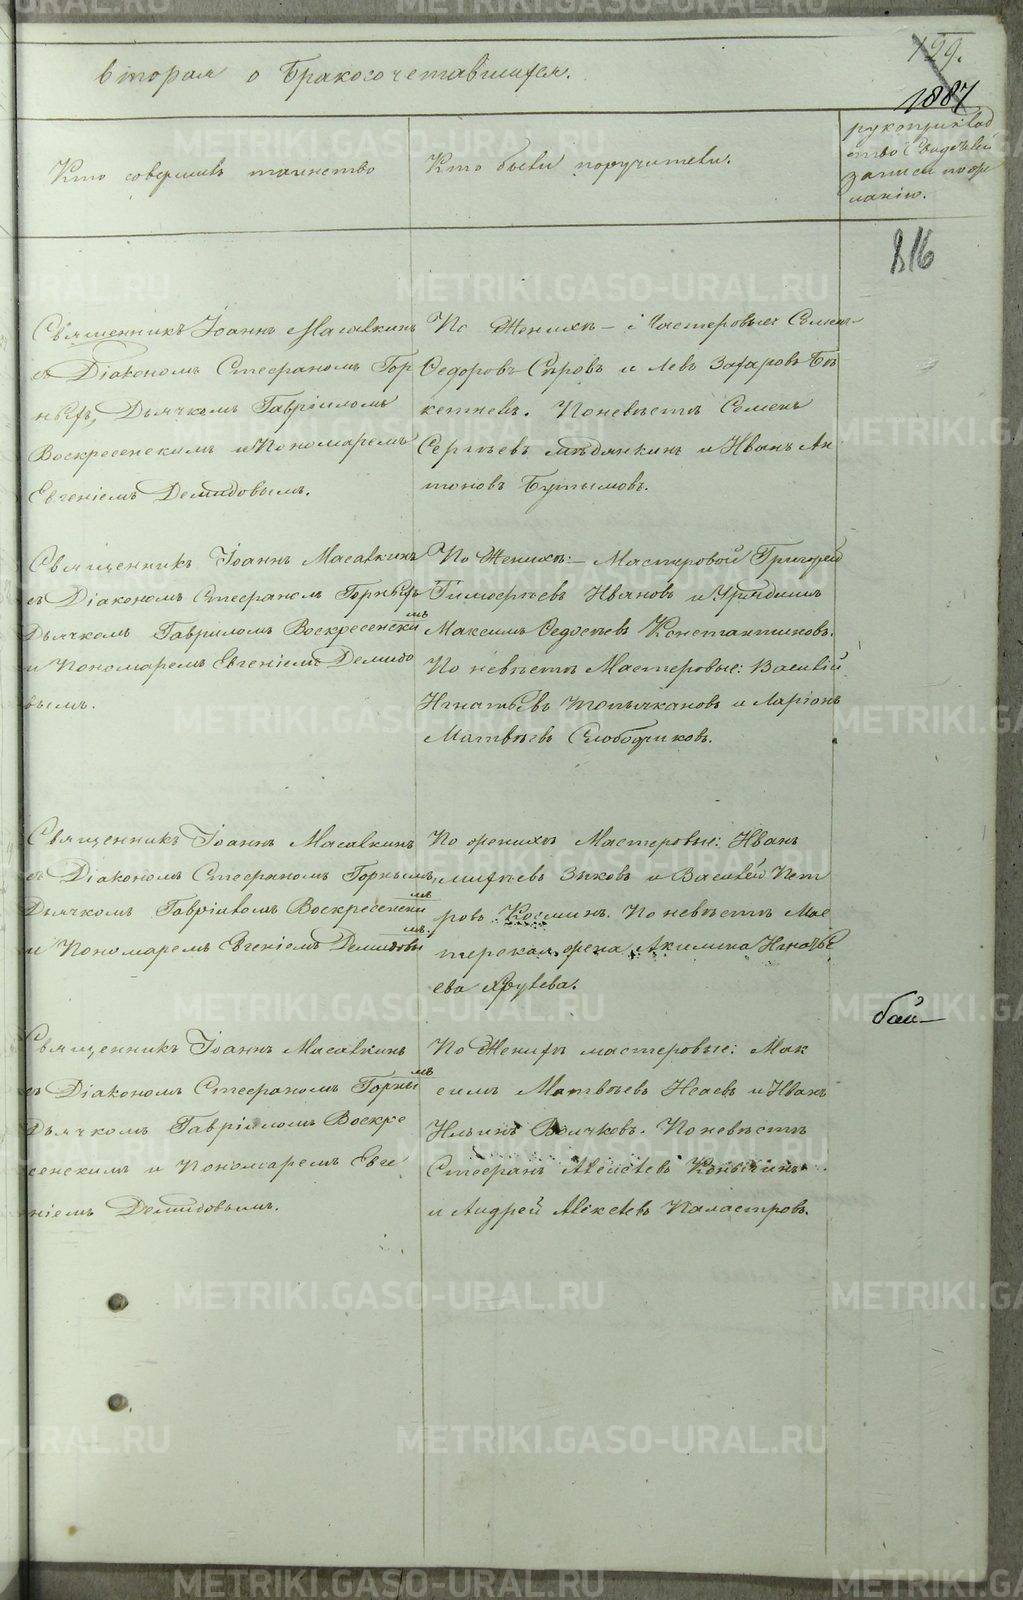 вторая о бракосочетавшихся.
129.
1887
Кто совершилъ таинство
Кто были поручители.
рукоприклад
ство свидѣтелей
записи по же
ланію.
816
Священникъ Іоаннъ Масалкинъ
съ Діакономъ Стефаномъ Гор
нымъ, Дьячкомъ Гавріиломъ
Воскресенскимъ и Пономаремъ
Евгеніемъ Демидовымъ.
По Женихѣ – Мастеровые: Семенъ
Федоровъ Сѣровъ и Левъ Захаровъ Бѣ
кетневъ. По невѣстѣ Семенъ
Сергѣевъ Мѣдянкинъ и Иванъ Ан
тоновъ Бутымовъ.
Священникъ Іоаннъ Масалкинъ
съ Діакономъ Стефаномъ Горнымъ
Дьячкомъ Гавриломъ Воскресенскимъ
и Пономаремъ Евгеніемъ Демидо
вымъ.
По Женихѣ: – Мастеровой Григорей
Тимофѣевъ Ивановъ и Урядникъ
Максимъ Федосѣевъ Константиновъ.
По невѣстѣ Мастеровые: Василій
Игнатьевъ Толычкановъ и Ларіонъ
Матвѣевъ Слободчиковъ.
Священникъ Іоаннъ Масалкинъ
съ Діакономъ Стефаномъ Горнымъ,
Дьячкомъ Гавріиломъ Воскресенскимъ
и Пономаремъ Евгеніемъ Демидовымъ
По женихѣ Мастеровые: Иванъ
Михѣевъ Зыковъ и Василей Пет
ровъ Косминъ. По невѣстѣ Мас
терская жена Акилина Игнатье
ева
бай–
Священникъ Іоаннъ Масалкинъ
съ Діакономъ Стефаномъ Горнымъ
Дьячкомъ Гавріиломъ Воскре
сенскимъ и Пономаремъ Евге
ніемъ Демидовымъ.
По Женихѣ мастеровые: Мак
симъ Матвѣевъ Исаевъ и Иванъ
Ильинъ Волчковъ. По невѣстѣ
Стефанъ Алексѣевъ
и Андрей Алексѣевъ Паластровъ.
METRIKI.GASO-URAL.RU